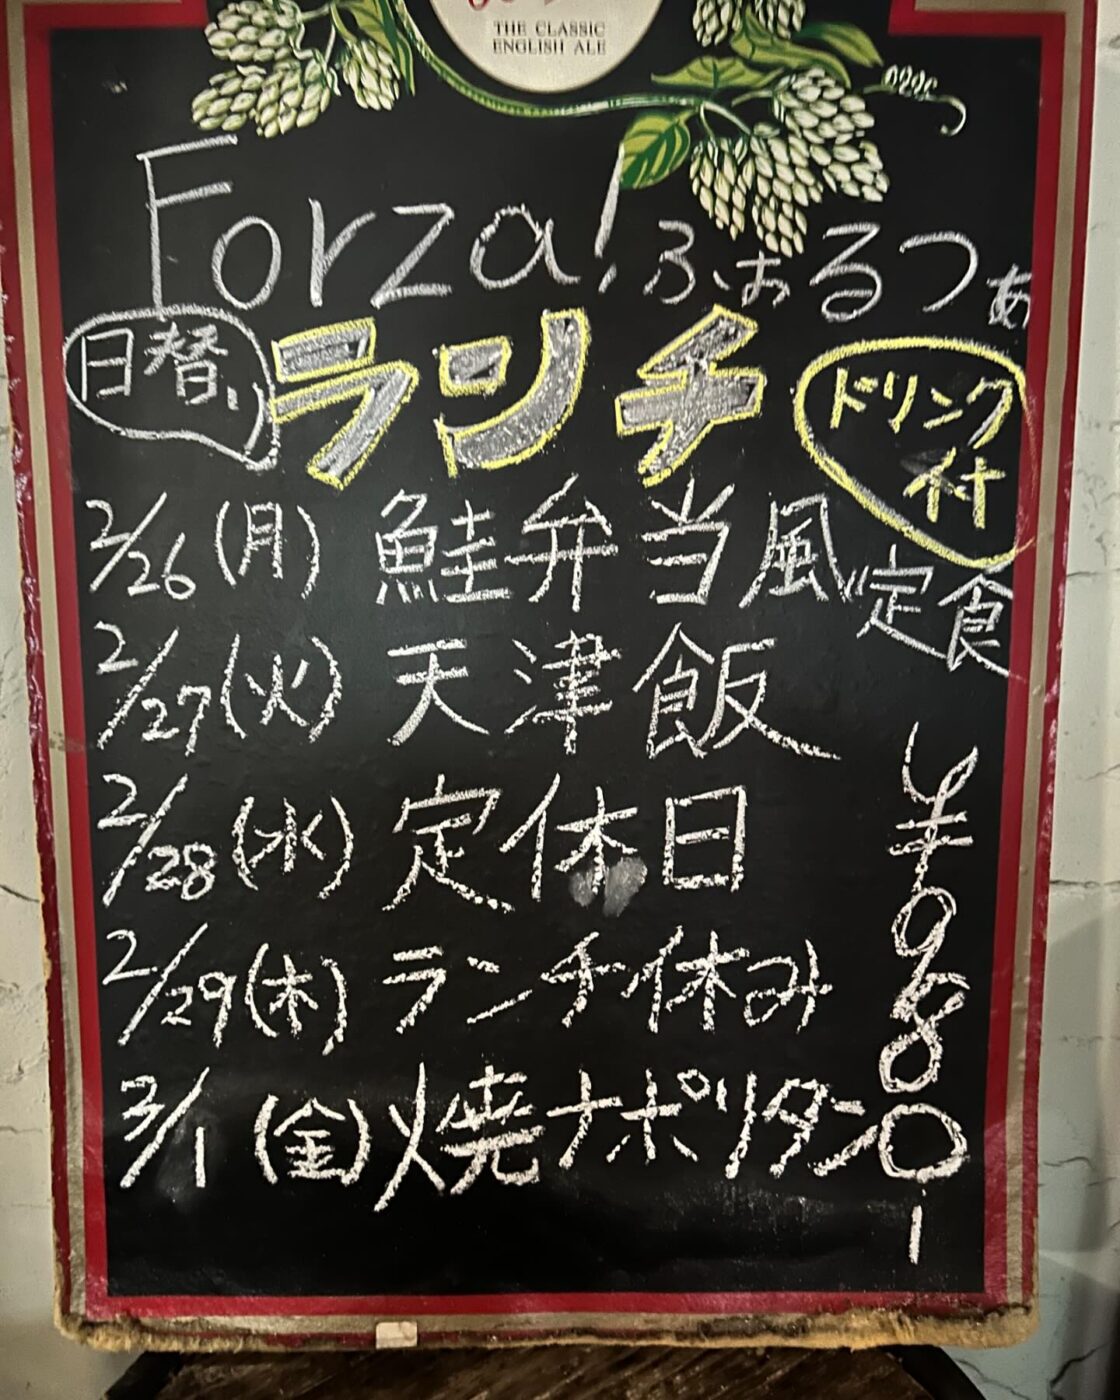 THE CLASSIC
ENGLISH ALE
Forza! ふぉるつぁ
日替り ランチ ドリンク付
2/26(月) 鮭弁当風定食
2/27(火) 天津飯
2/28(水) 定休日
2/29(木) ランチ休み
3/1(金) 焼ナポリタン
¥980-